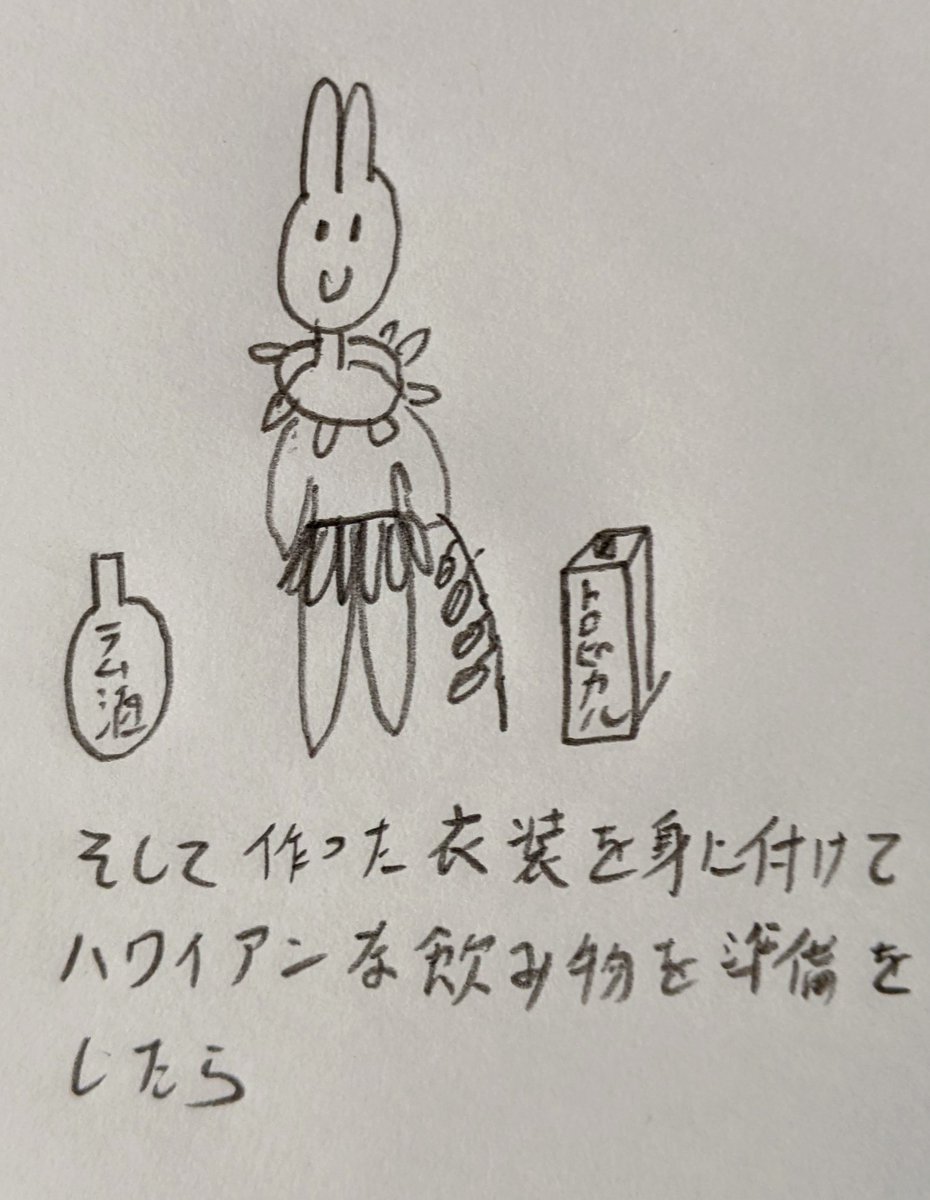 ラム酒
トロピカル
そして作った衣装を身に付けて
ハワイアンな飲み物を準備を
したら